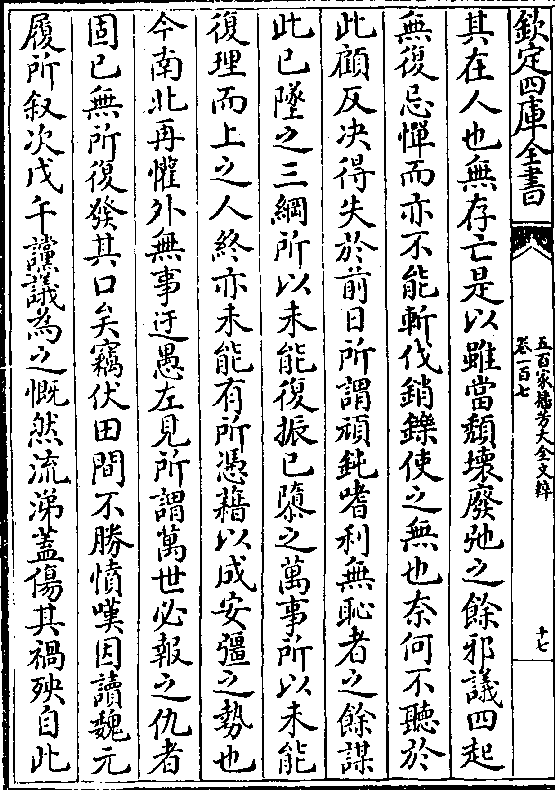 欽定四庫全書
五百家播芳大全文粹
卷一百七
十七
其在人也無存亡是以雖當頽壞廢弛之餘邪議四起
無復忌憚而亦不能斬伐銷鑠使之無也奈何不聽於
此顧反决得失於前日所謂頑鈍嗜利無恥者之餘謀
此已墜之三綱所以未能復振已隳之萬事所以未能
復理而上之人終亦未能有所憑藉以成安彊之勢也
今南北再懽外無事迂愚左見所謂萬世必報之仇者
固已無所復發其口矣竊伏田間不勝憤嘆因讀魏元
履所叙次戊午讜議為之慨然流涕蓋傷其禍殃自此